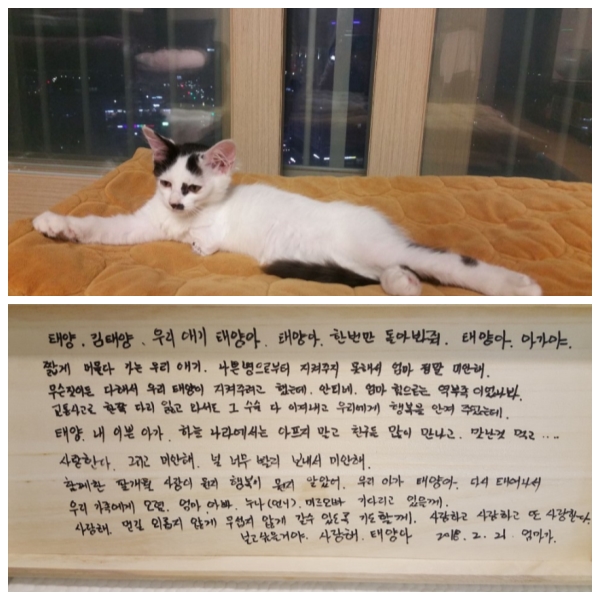 태양. 김태양. 우리 애기 태양아. 태양아. 한번만 돌아봐줘. 태양아. 아가야.
짧게 머물다 가는 우리 애기. 나쁜병으로부터 지켜주지 못해서 엄마 정말 미안해.
무슨짓이든 다해서 우리 태양이 지켜주려고 했는데. 안되네. 엄마 힘으로는 역부족이었나봐.
교통사고로 한쪽 다리 잃고 와서도 그 수술 다 이겨내고 우리에게 행복을 안겨 주었는데.
태양. 내 이쁜 아가. 하늘 나라에서는 아프지 말고 친구들 많이 만나고. 맛난것 먹고 ....
사랑한다. 그리고 미안해. 널 너무 빨리 보내서 미안해.
함께한 팔개월 사랑이 뭔지 행복이 뭔지 알았어. 우리 아가 태양아. 다시 태어나서
우리 가족에게 오렴. 엄마 아빠. 누나(언니). 미르오빠 기다리고 있을께.
사랑해. 먼길 외롭지 않게 무섭지 않게 갈수 있도록 기도할께. 사랑하고 사랑하고 또 사랑한다.
보고싶을거야. 사랑해. 태양아 2018. 2. 21. 엄마가.